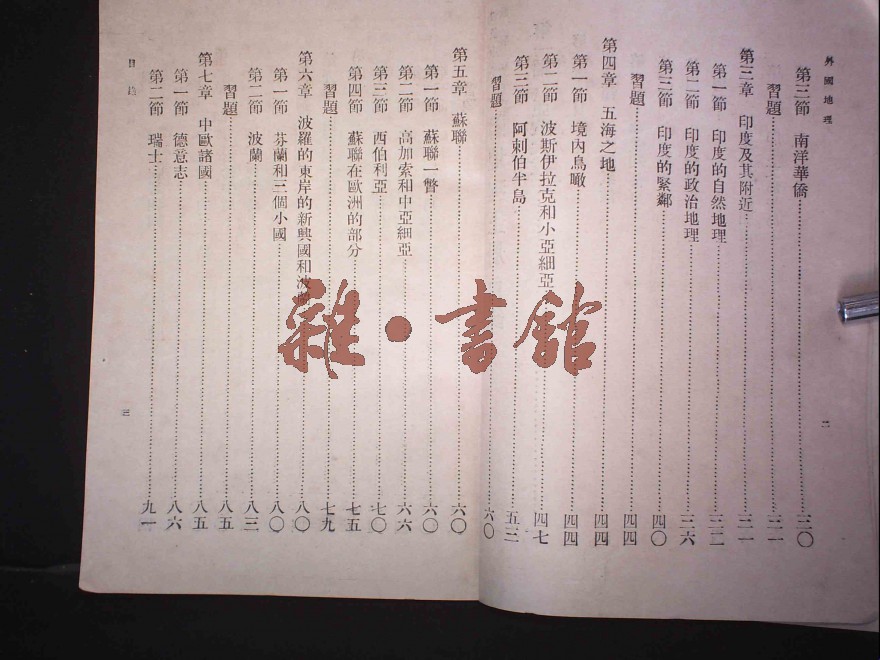 外國地理
第三節　南洋華僑……三〇
習題……三一
第三章　印度及其附近……三一
第一節　印度的自然地理……三二
第二節　印度的政治地理……三六
第三節　印度的緊鄰……四〇
習題……四四
第四章　五海之地……四四
第一節　境內鳥瞰……四四
第二節　波斯伊拉克和小亞細亞……四七
第三節　阿剌伯半島……五三
習題……六〇
二
第五章　蘇聯……六〇
第一節　蘇聯一瞥……六〇
第二節　高加索和中亞細亞……六六
第三節　西伯利亞……七〇
第四節　蘇聯在歐洲的部分……七五
習題……七九
第六章　波羅的東岸的新興國和波……八〇
第一節　芬蘭和三個小國……八〇
第二節　波蘭……八三
習題……八五
第七章　中歐諸國……八五
第一節　德意志……八六
第二節　瑞士……九一
目錄
三
雜·書館